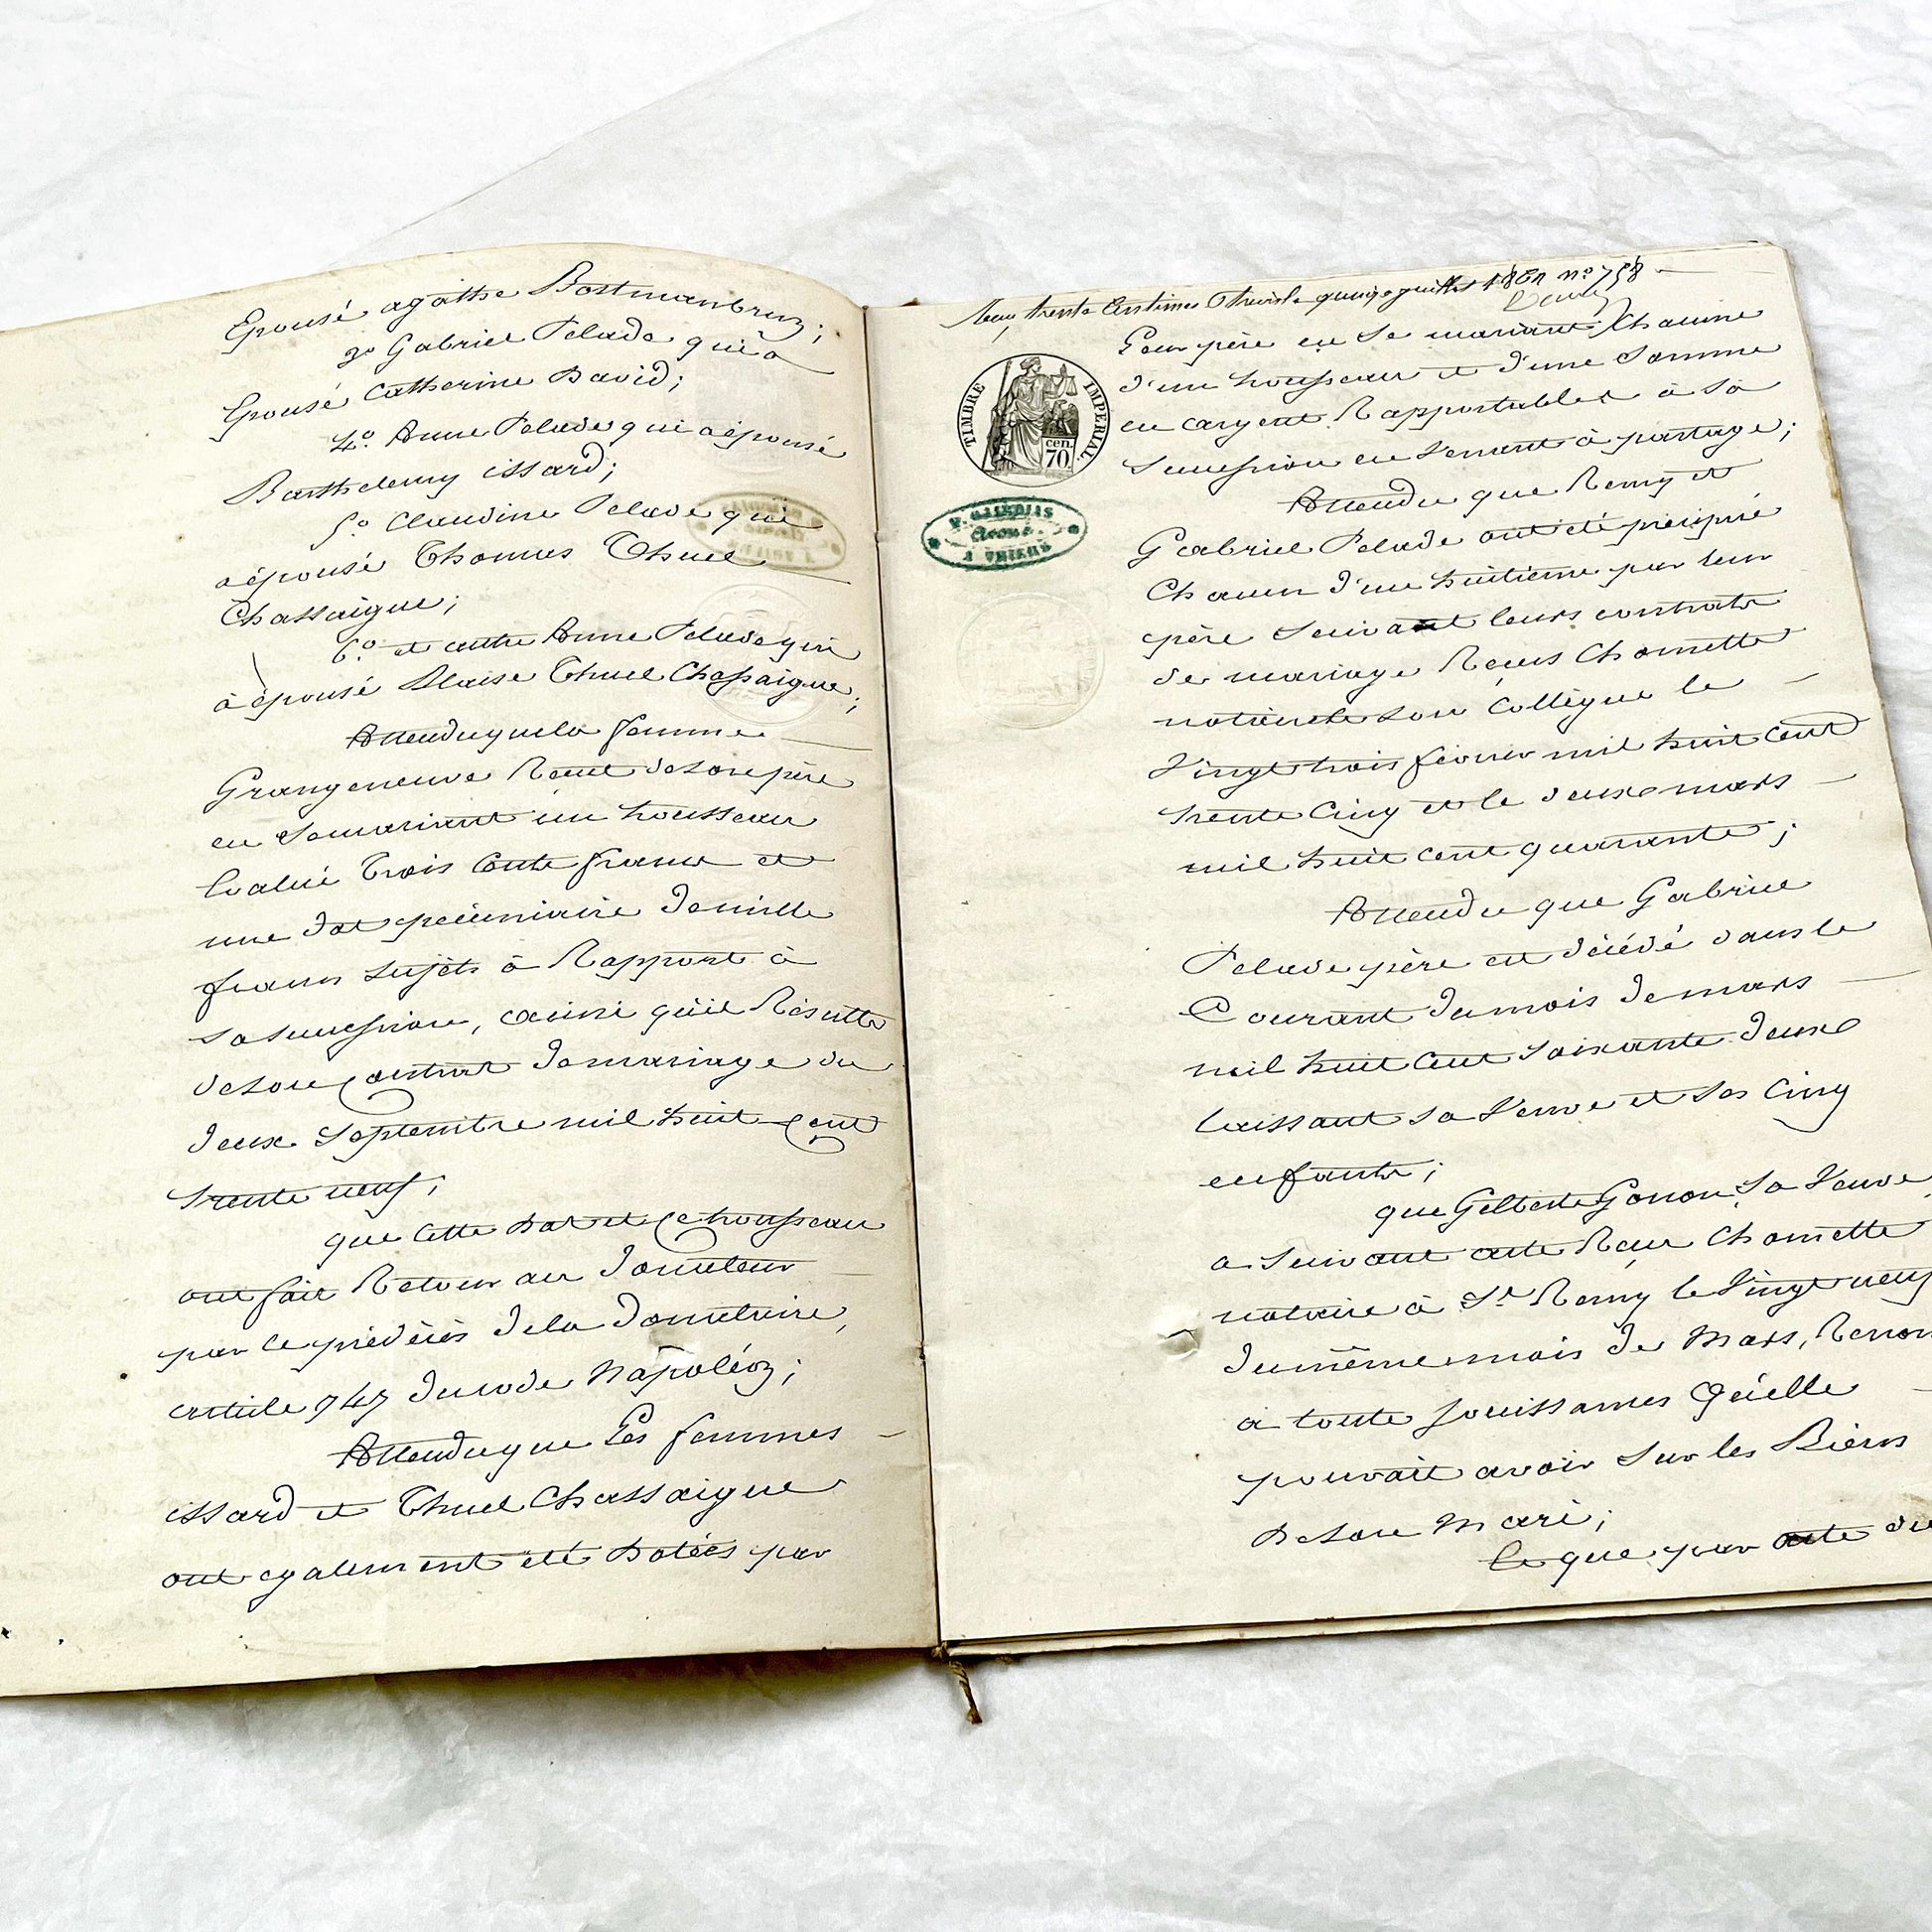 Epousé agathe Bostmanbrun;
3º Gabriel Pelade qui a
Epousé Catherine David;
4º. Anne Pelade qui a épousé
Barthelemy issard;
5º. Claudine Pelade qui
a épousé Thomas Thuel
Chassaigne;
6º. et autre Anne Pelade qui
a épousé Blaise Thuel Chassaigne;
Attendu que la femme
Grangeneuve Reçut de son père
en se mariant un trousseau
Evalué Trois Cents francs et
une dot pécuniaire de mille
francs sujets à Rapport à
sa succession, ainsi qu'il Résulte
de son Contrat de mariage du
deux Septembre mil huit Cent
trente neuf;
que cette Dot et Ce trousseau
ont fait Retour au donateur
par le prédécès de la donataire,
article 747 du code Napoléon;
Attendu que Les femmes
issard et Thuel Chassaigne
ont egalement été Dotées par
trente Centimes Thiers le quinze juillet 186 nº 758
Leur père en se mariant Chacune
d'un trousseau et d'une Somme
en argent Rapportables à Sa
Succession en Venant à partage;
TIMBRE IMPERIAL
cen. 70
Attendu que Remy et
Avoué
A THIERS
Gabriel Pelade ont été préciput
Chacun d'un huitième par leur
père Suivant leurs contrats
de mariage Reçus Chomette
notaire et son Collègue le
Vingt trois février mil huit cent
trente Cinq et le deux mars
mil huit cent quarante;
Attendu que Gabriel
Pelade père est décédé dans le
Courant du mois de mars
mil huit Cent Soixante deux
laissant Sa Veuve et Ses Cinq
enfants;
que Gilberte Gonon Sa Veuve
a Suivant acte Reçu Chomette
notaire à St Remy le Vingt neuf
du même mois de Mars, Renon
à toute Jouissances Qu'elle
pouvait avoir Sur les Biens
De Son Mari;
que par acte du